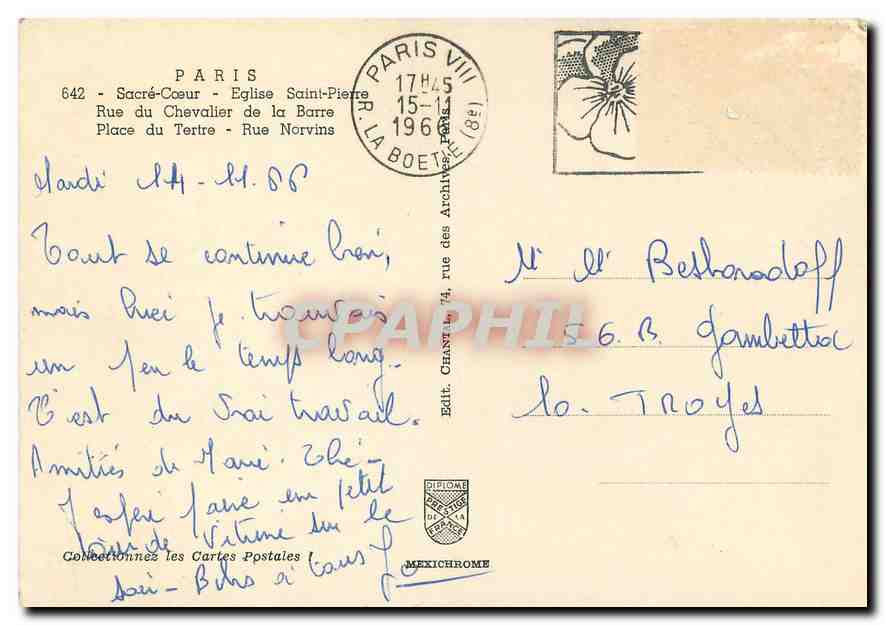 PARIS
642 - Sacré-Cœur - Eglise Saint-Pierre
Rue du Chevalier de la Barre
Place du Tertre - Rue Norvins
PARIS VIII
17H45
15-11
1966
R. LA BOETIE (8e)
Mardi 14-11-66
Tout se continue bien,
mais hier je trouvais
un peu le temps long.
C'est du vrai travail.
Amitiés de Marie-Thé-
J'espère faire un petit
tour de Vitrine sur le
soir - à tous
Collectionnez les Cartes Postales !
Edit. CHANTAL, 74, rue des Archives, Paris
DIPLOME
PRESTIGE
DE LA
FRANCE
MEXICHROME
M. M.
56. B. Gambetta
10. TROYES
CPAPHIL